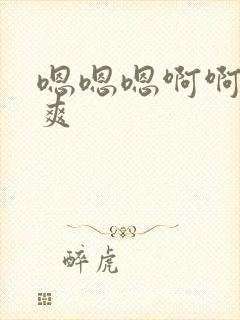 嗯嗯嗯啊啊
爽
醉虎